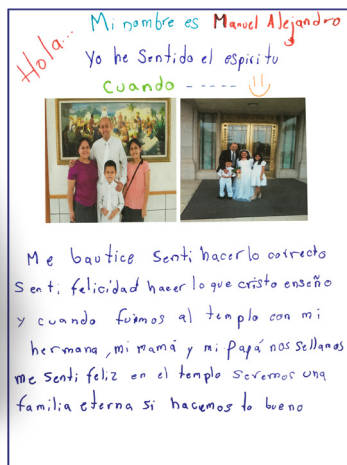 Hola...
Mi nombre es Manuel Alejandro
Yo he Sentido el espiritu
Cuando - - - - -
Me bautice Senti hacer lo correcto
Senti felicidad hacer lo que cristo enseño
y cuando fuimos al templo con mi
hermana, mi mamá y mi papá nos sellamos
me Senti feliz en el templo Seremos una
familia eterna si hacemos lo bueno